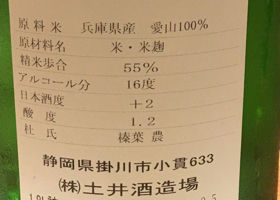 原料米 兵庫県産 愛山100%
原材料名 米・米麹
精米歩合 55%
アルコール分 16度
日本酒度 +2
酸度 1.2
杜氏 榛葉 農
静岡県掛川市小貫633
(株)土井酒造場